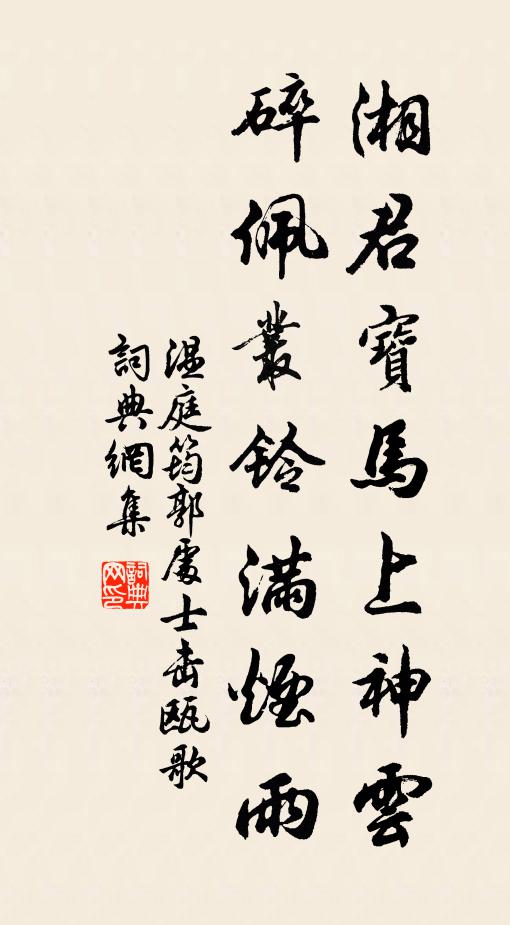 湘君寶馬上神雲
碎佩叢鈴滿煙雨
温庭筠郭處士击甌歌
詞典網集
詞典网印